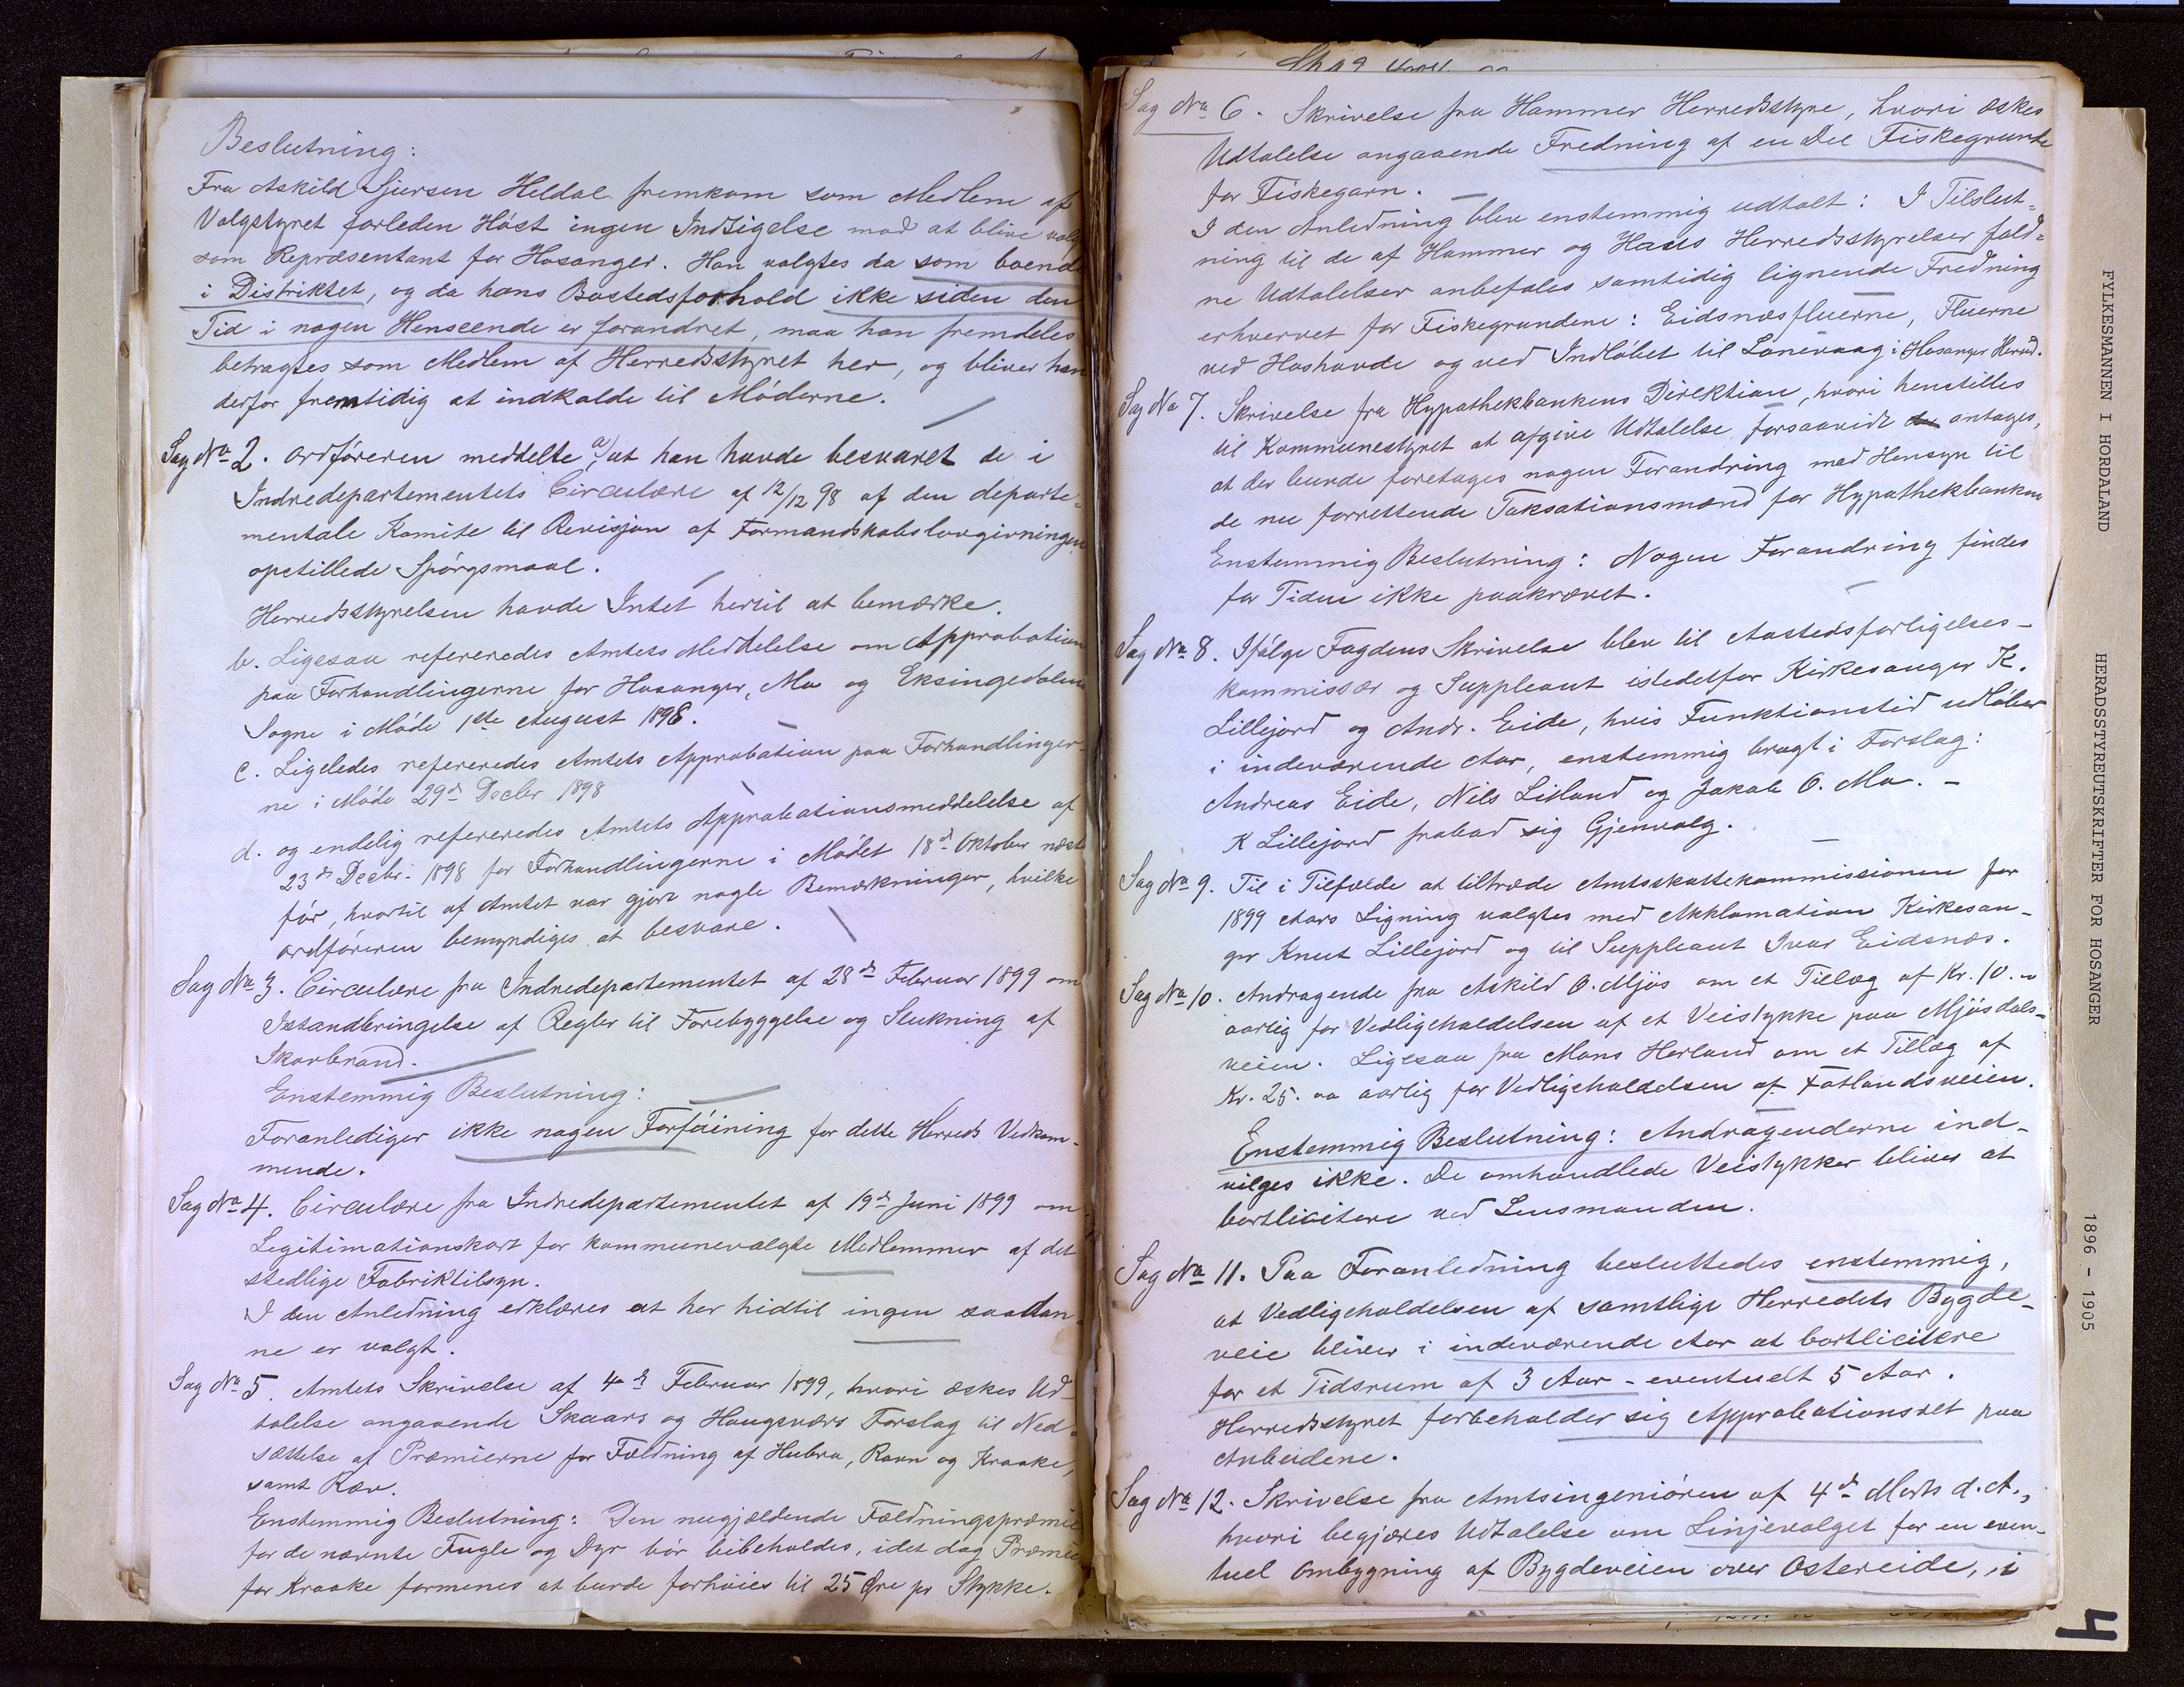 Beslutning:
Fra Askild Sjursen Heldal fremkom som Medlem af
Valgstyret forleden Høst ingen Indsigelse mod at blive valgt
som Repræsentant for Hosanger. Han valgtes da som boende
i Distriktet, og da hans Bostedsforhold ikke siden den
Tid i nogen Henseende er forandret, maa han fremdeles
betragtes som Medlem af Herredsstyret her, og bliver han
derfor fremtidig at indkalde til Møderne.
Sag No 2. Ordføreren meddelte a), at han havde besvaret de i
Indredepartementets Circulære af 12/12 98 af den departe-
mentale Komite til Revisjon af Formandskabslovgivningen
opstillede Spørgsmaal.
Herredsstyrelsen havde Intet hertil at bemærke.
b. Ligesaa refereredes Amtets Meddelelse om Approbation
paa Forhandlingerne for Hosanger, Mo og Eksingedalens
Sogne i Møde 1ste August 1898.
c. Ligeledes refereredes Amtets Approbation paa Forhandlinger-
ne i Møde 29de Decbr 1898
d. og endelig refereredes Amtets Approbationsmeddelelse af
23de Decbr. 1898 for Forhandlingerne i Mødet 18de Oktober næst
før, hvortil af Amtet var gjort nogle Bemærkninger, hvilke
Ordføreren bemyndiges at besvare.
Sag No 3. Circulære fra Indredepartementet af 28de Februar 1899 om
Istandbringelse af Regler til Forebyggelse og Slukning af
Skovbrand.
Enstemmig Beslutning:
Foranlediger ikke nogen Forføining for dette Herreds Vedkom-
mende.
Sag No 4. Circulære fra Indredepartementet af 19de Juni 1899 om
Legitimationskort for kommunevalgte Medlemmer af det
stedlige Fabriktilsyn.
I den Anledning erklæres at her hidtil ingen saadan-
ne er valgt.
Sag No 5. Amtets Skrivelse af 4de Februar 1899, hvori æskes Ud-
talelse angaaende Skaars og Haugsværs Forslag til Ned-
sættelse af Præmierne for Fældning af Hubro, Ravn og Kraake,
samt Ræv.
Enstemmig Beslutning: Den nugjældende Fældningspræmie
for de nævnte Fugle og Dyr bør bibeholdes, idet dog Præmie
for Kraake formenes at burde forhøies til 25 Øre pr Stykke.
Sag No 6. Skrivelse fra Hammer Herredsstyre, hvori æskes
Udtalelse angaaende Fredning af en Del Fiskegrunde
for Fiskegarn.
I den Anledning blev enstemmig udtalt: I Tilslut-
ning til de af Hammer og Haus Herredsstyrelser fald-
ne Udtalelser anbefales samtidig lignende Fredning
erhvervet for Fiskegrundene: Eidsnæsfluerne, Fluerne
ved Hoshovde og ved Indløbet til Lonevaag i Hosanger Herred.
Sag No 7. Skrivelse fra Hypothekbankens Direktion, hvori henstilles
til Kommunestyret at afgive Udtalelse forsaavidt antages,
at der burde foretages nogen Forandring med Hensyn til
de nu forrettende Taksationsmænd for Hypothekbanken
Enstemmig Beslutning: Nogen Forandring findes
for Tiden ikke paakrævet.
Sag No 8. Ifølge Fogdens Skrivelse blev til Aastedsforligelses-
kommissær og Suppleant istedetfor Kirkesanger K.
Lillejord og Andr. Eide, hvis Funktionstid udløber
i indeværende Aar, enstemmig bragt i Forslag:
Andreas Eide, Nils Litland og Jakob O. Mo. -
K Lillejord frabad sig Gjenvalg.
Sag No 9. Til i Tilfælde at tiltræde Amtsskattekommissionen for
1899 Aars Ligning valgtes med Akklamation Kirkesan-
ger Knut Lillejord og til Suppleant Ivar Eidsnæs.
Sag No 10. Andragende fra Askild O. Mjøs om et Tillæg af Kr. 10.00
aarlig for Vedligeholdelsen af et Veistykke paa Mjøsdals-
veien. Ligesaa fra Mons Herland om et Tillæg af
Kr. 25.00 aarlig for Vedligeholdelsen af Fotlandsveien.
Enstemmig Beslutning: Andragenderne ind-
vilges ikke. De omhandlede Veistykker bliver at
bortlicitere ved Lensmanden.
Sag No 11. Paa Foranledning besluttedes enstemmig,
at Vedligeholdelsen af samtlige Herredets Bygde-
veie bliver i indeværende Aar at bortlicitere
for et Tidsrum af 3 Aar - eventuelt 5 Aar.
Herredsstyret forbeholder sig Approbationsret paa
Anbudene.
Sag No 12. Skrivelse fra Amtsingeniøren af 4de Marts d.A.,
hvori begjæres Udtalelse om Linjevalget for en even-
tuel Ombygning af Bygdeveien over Ostereide, i
FYLKESMANNEN I HORDALAND
HERADSSTYREUTSKRIFTER FOR HOSANGER
1896 - 1905
4